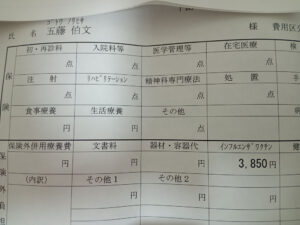 ゴトウ ノリフミ
氏 名 五藤 伯文 様 費用区
初・再診料 入院料等 医学管理等 在宅医療 検
点 点 点 点
保 注 射 リハビリテーション 精神科専門療法 処 置 手
点 点 点 点
険 食事療養 生活療養 その他
円 円 点
保険外併用療養費 文書料 器材・容器代 インフルエンザワクチン 健
円 円 円 3,850円
(内訳) その他1 その他2
円 円
保
険
外
負